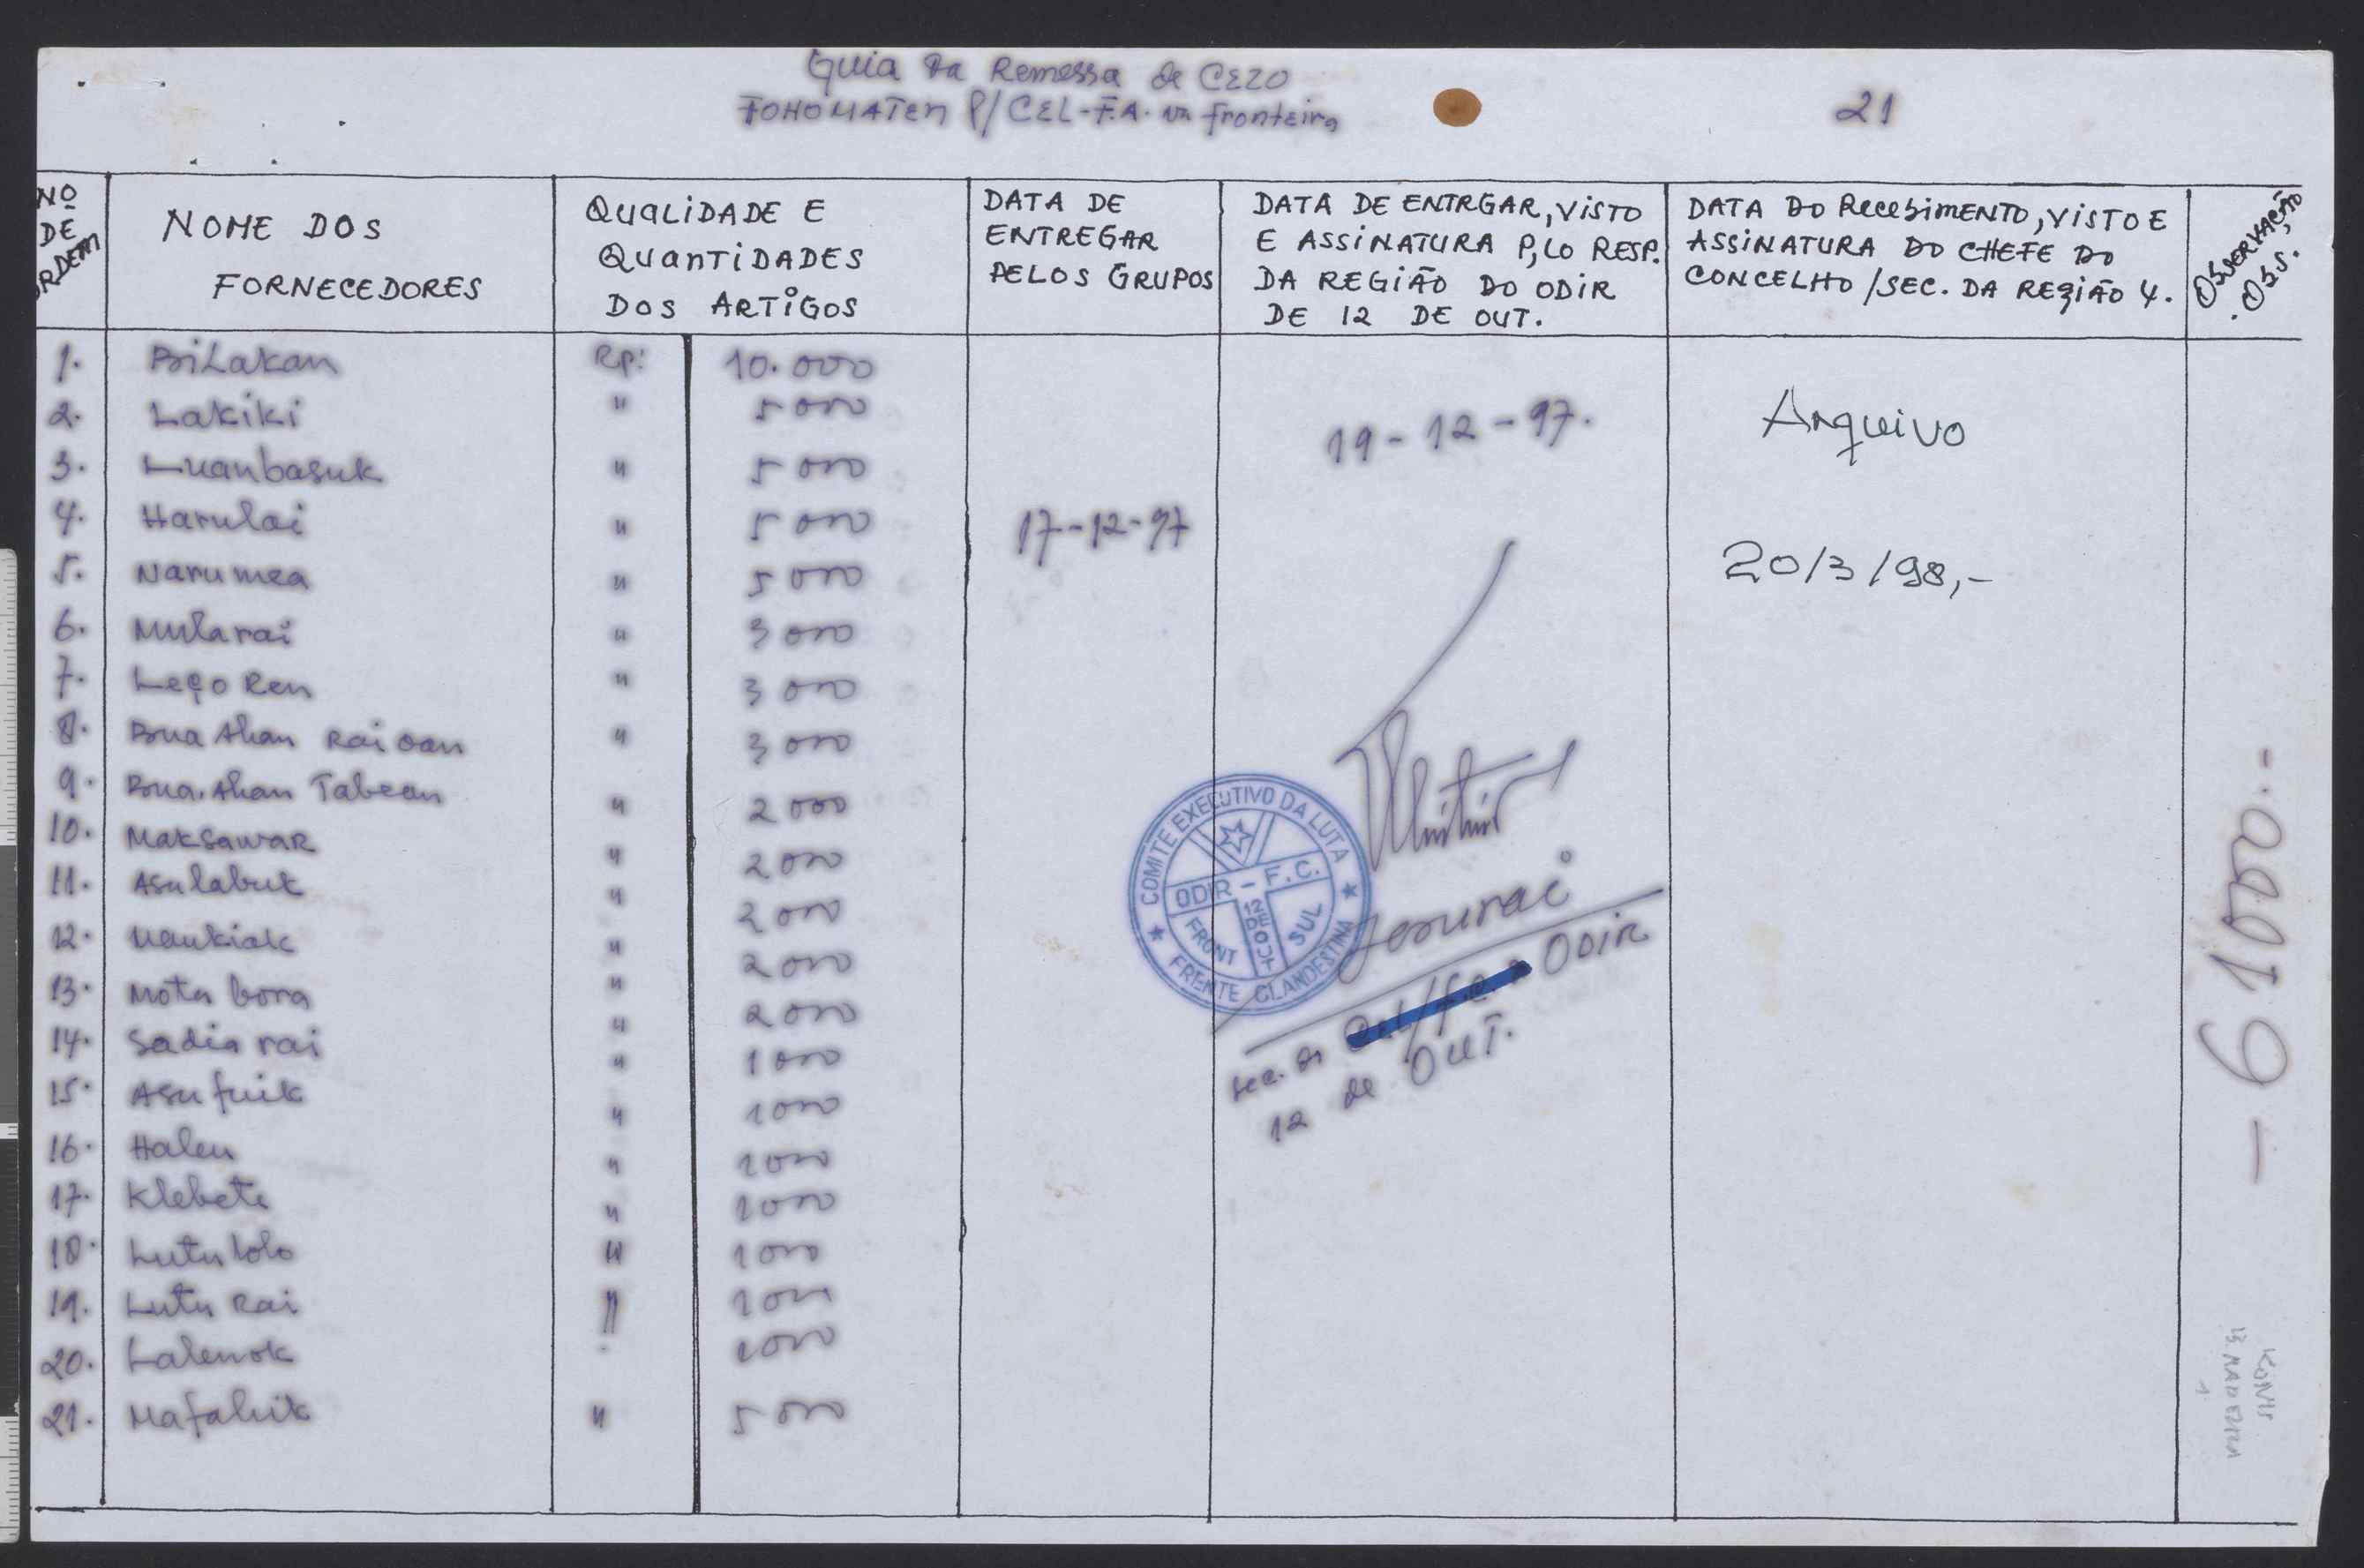 Guia da Remessa de CEZO
FOHOMATEN P/ CEL-F.A. na fronteira
21
Nº DE ORDEM
NOME DOS FORNECEDORES
QUALIDADE E QUANTIDADES DOS ARTIGOS
DATA DE ENTREGAR PELOS GRUPOS
DATA DE ENTRGAR, VISTO E ASSINATURA P,LO RESP. DA REGIÃO DO ODIR DE 12 DE OUT.
DATA DO RecebimENTO, VISTO E ASSINATURA DO CHEFE DO CONCELHO /SEC. DA REGIÃO 4.
OBSERVAÇÃO, OBS.
1. BiLakan Rp: 10.000
2. Lakiki " 5000
3. Luanbasuk " 5000
4. Harulai " 5000
5. Narumea " 5000
6. Mularai " 3000
7. Leço Ren " 3000
8. Bua Ahan Rai oan " 3000
9. Bua Ahan Tabean " 2000
10. Maksawar " 2000
11. Asulabut " 2000
12. Maukiak " 2000
13. Mota bora " 2000
14. Sadia rai " 1000
15. Asu fuik " 1000
16. Haleu " 1000
17. Klebete " 1000
18. Lutu lolo " 1000
19. Lutu Rai " 1000
20. Lalenok 1000
21. Mafahik " 5000
17-12-97
19-12-97.
COMITE EXECUTIVO DA LUTA
ODIR - F.C.
12 DE OUT
FRONT SUL
FRENTE CLANDESTINA
Sec. da ODIR
12 de OUT.
Arquivo
20/3/98,-
- 61000.-